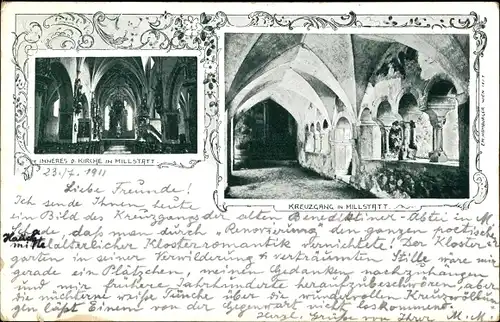 INNERES D. KIRCHE IN MILLSTATT
KREUZGANG IN MILLSTATT.
23./7. 1911
Liebe Freunde!
Ich sende Ihnen heute
ein Bild des Kreuzgangs der alten Benediktiner-Abtei in M.
Schade, daß man durch „Renovierung" den ganzen poetischen
Hauch mittelalterlicher Klosterromantik vernichtete! Der Kloster-
garten in seiner Verwilderung & verträumten Stille wäre mir
gerade ein Plätzchen, meinen Gedanken nachzuhangen
und mir frühere Jahrhunderte heraufzubeschwören, aber
die nüchterne weiße Tünche über die wundervollen Kreuzwölbun-
gen läßt Einem von der Gegenwart nicht loskommen.
Herzl. Grüße von Ihrer M. M.